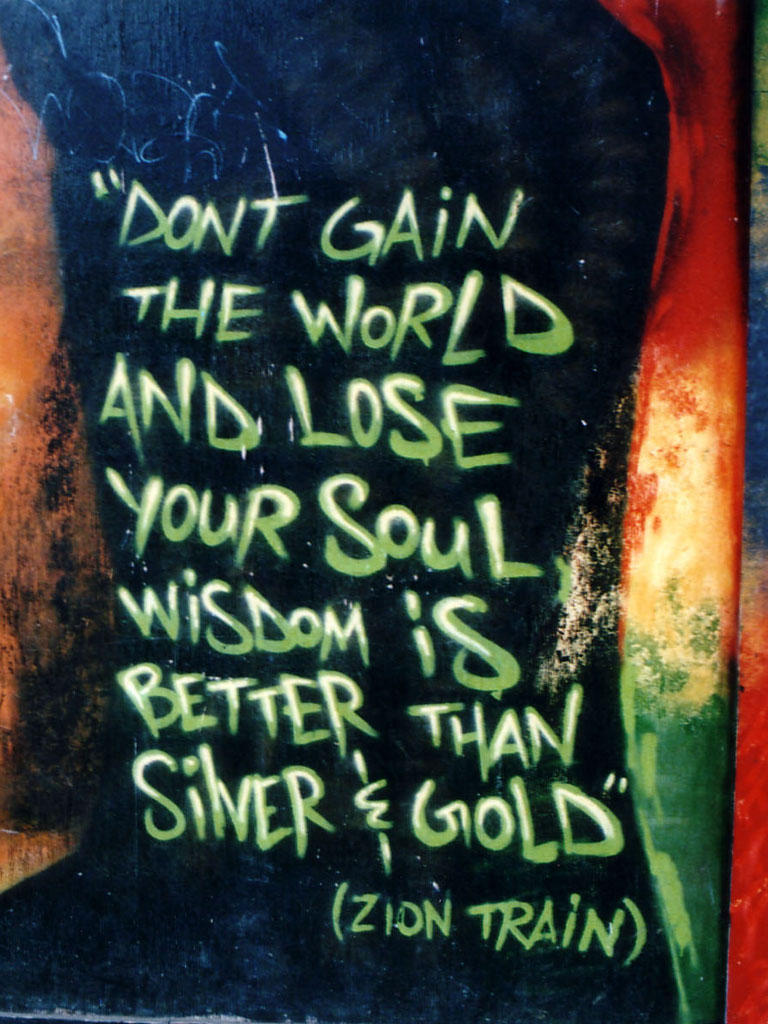 "DONT GAiN
THE WORLD
AND LOSE
YOUR SOUL,
WiSDOM iS
BETTER THAN
SiLVER & GOLD"
(ZION TRAiN)